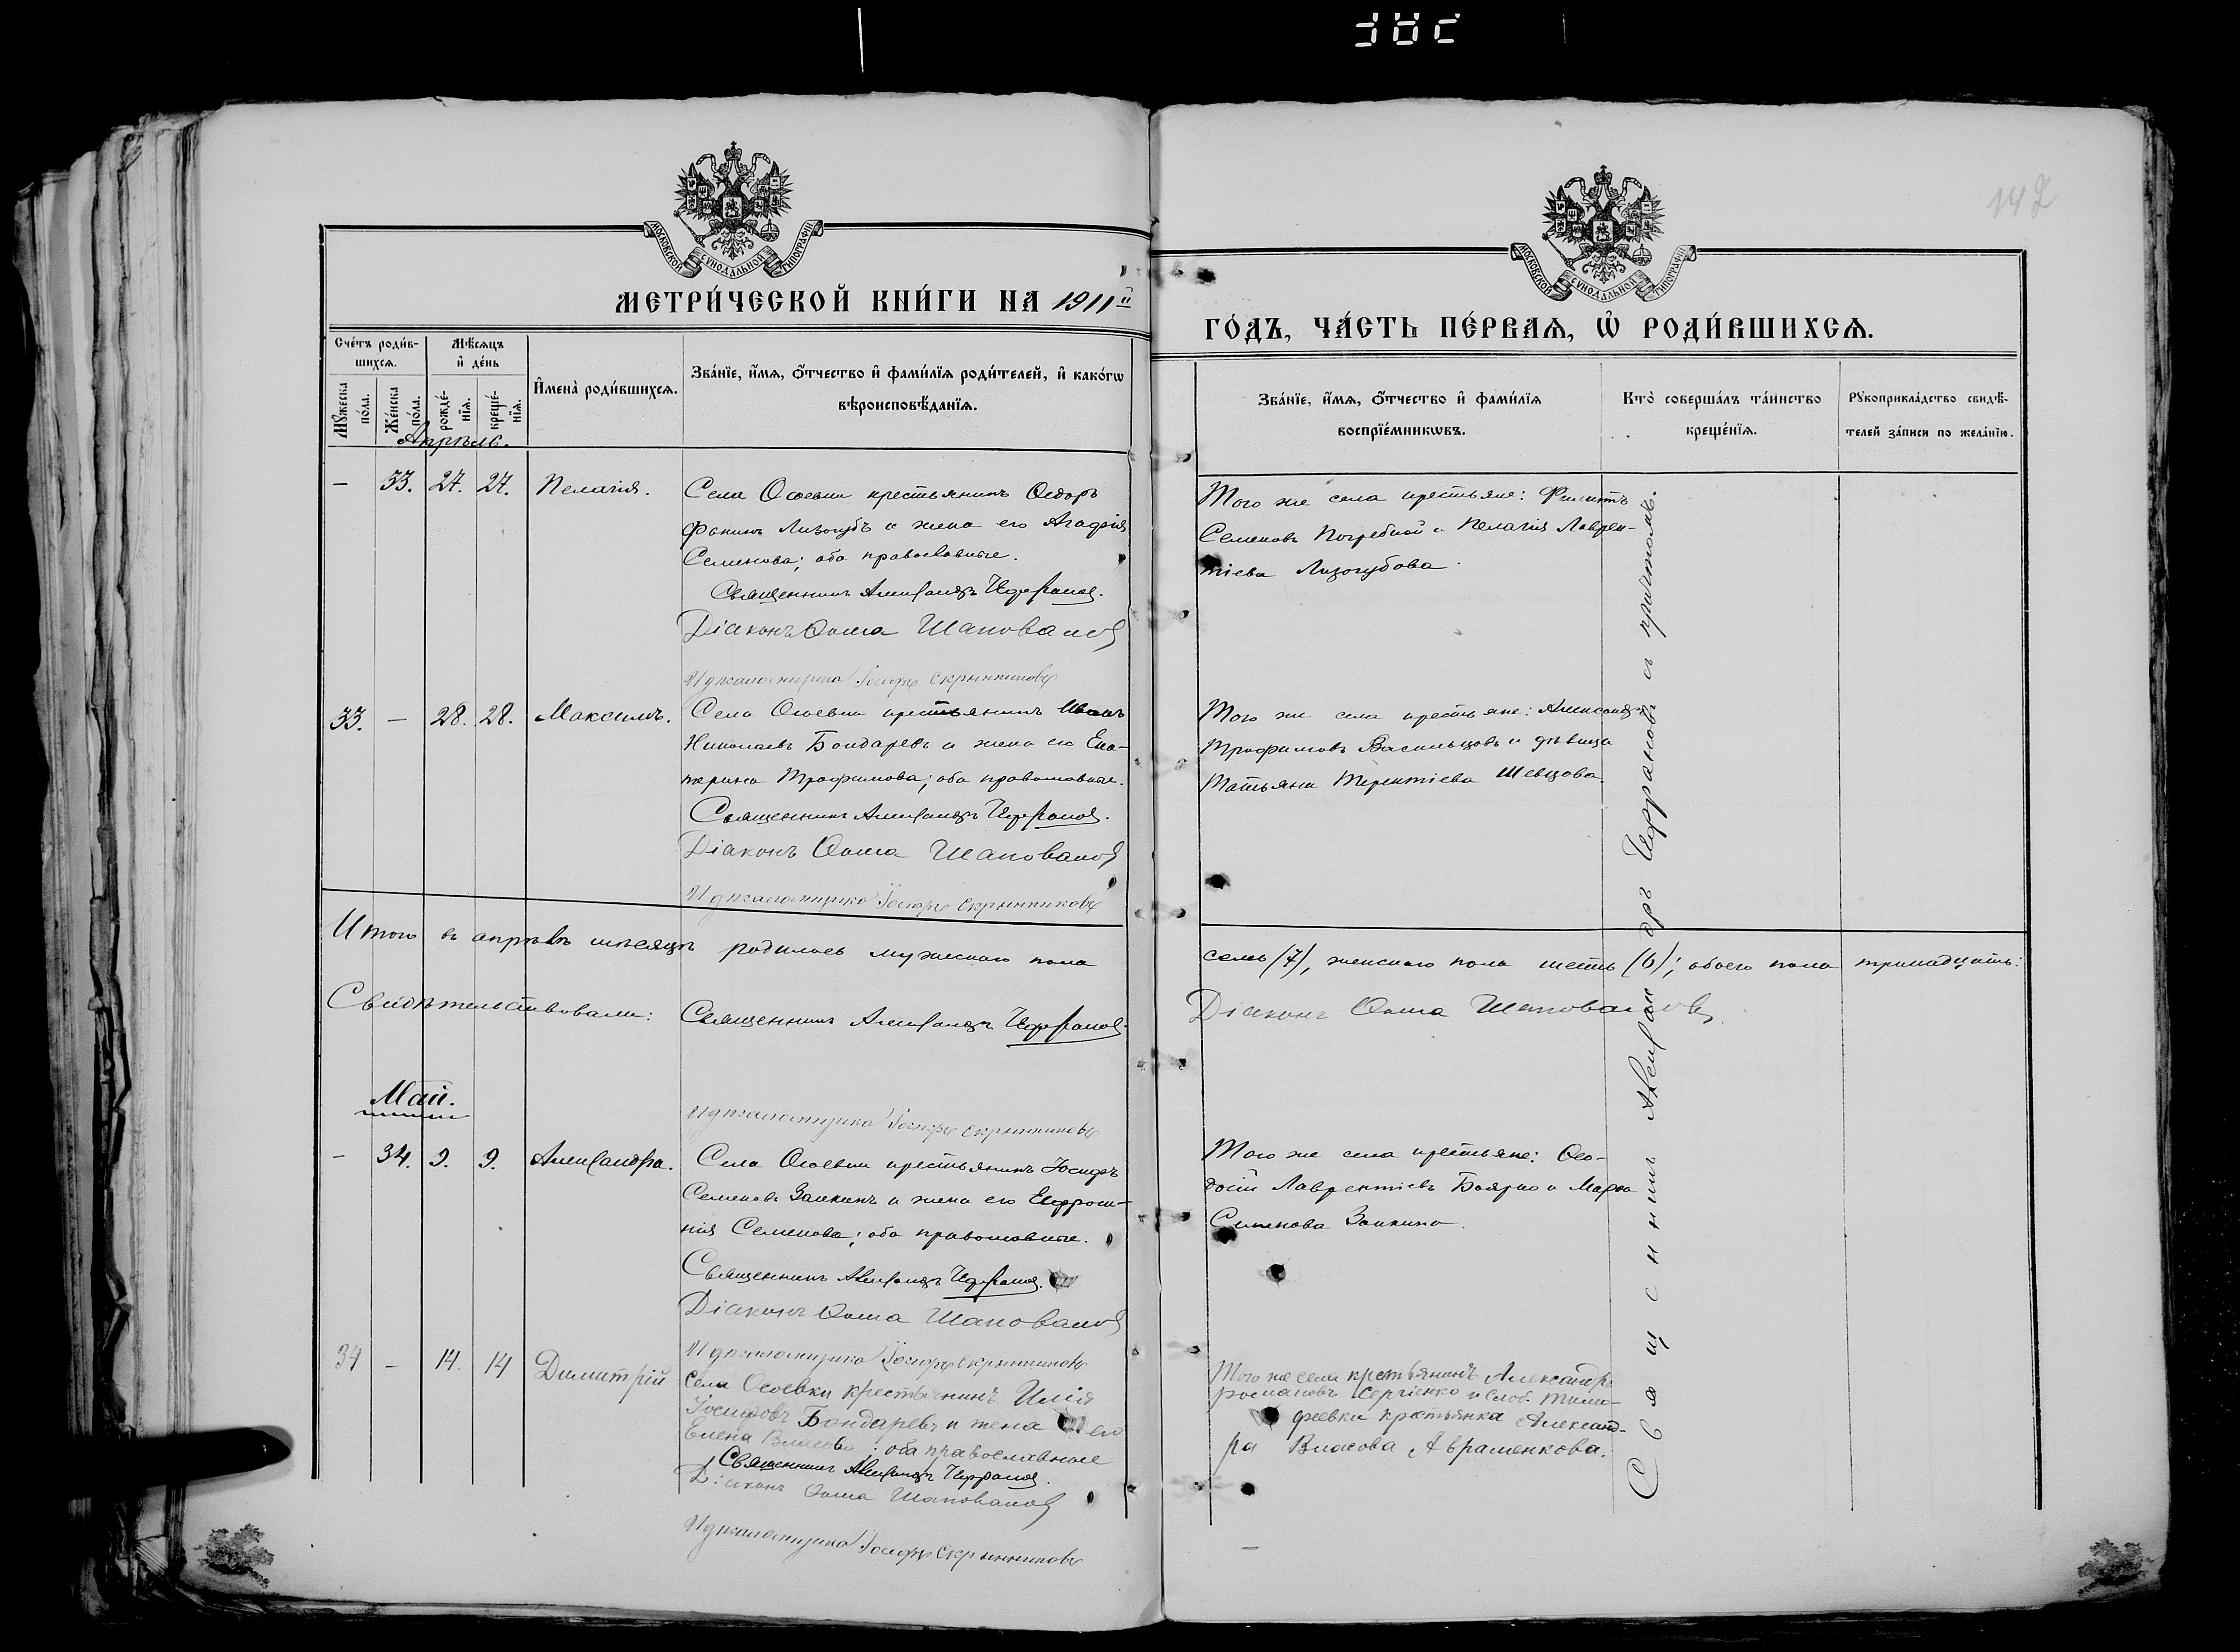 142
МОСКОВСКОЙ СѴНОДАЛЬНОЙ ТИПОГРАФІИ
МОСКОВСКОЙ СѴНОДАЛЬНОЙ ТИПОГРАФІИ
МЕТРИ́ЧЕСКОЙ КНИ́ГИ НА 1911й
ГО́ДЪ, ЧА́СТЬ ПЕ́РВАѦ, Ѡ҆ РОДИ́ВШИХСѦ.
Сче́тъ роди́в-
шихсѧ.
Мꙋ́жеска по́ла.
Же́нска по́ла.
Мѣ́сѧцъ
и҆ де́нь
рожде́-
нїѧ.
креще́-
нїѧ.
И҆мена̀ роди́вшихсѧ.
Зва́нїе, и҆́мѧ, ѻ҆́тчество и҆ фами́лїѧ роди́телей, и҆ како́гѡ
вѣроисповѣ́данїѧ.
Зва́нїе, и҆́мѧ, ѻ҆́тчество и҆ фами́лїѧ
воспрїе́мникѡвъ.
Кто̀ соверша́лъ та́инство
креще́нїѧ.
Рꙋкоприкла́дство свидѣ́-
телей за́писи по жела́нїю.
Апрѣль.
— 33. 27. 27. Пелагія.
Села Осоевки крестьянинъ Ѳедоръ
Фокинъ Лизогубъ и жена его Агафія
Семенова; оба православные.
Священникъ Александръ
Діаконъ Ѳома Шаповаловъ
И д псаломщика Іосифъ Скрынниковъ
Того же села крестьяне: Филиппъ
Семеновъ Погребной и Пелагія Лаврен-
тіева Лизогубова.
33. — 28. 28. Максимъ.
Села Осоевки крестьянинъ Иванъ
Николаевъ Бондаревъ и жена его Ека-
терина Трофимова; оба православные.
Священникъ Александръ
Діаконъ Ѳома Шаповаловъ
И д псаломщика Іосифъ Скрынниковъ
Того же села крестьяне: Александръ
Трофимовъ Васильцовъ и дѣвица
Татьяна Терентіева Шевцова.
Итого въ апрѣлѣ мѣсяцѣ родилось мужескаго пола
семь (7), женскаго пола шесть (6); обоего пола тринадцать.
Свидѣтельствовали: Священникъ Александръ
Діаконъ Ѳома Шаповаловъ
И д псаломщика Іосифъ Скрынниковъ
Май.
— 34. 9. 9. Александра.
Села Осоевки крестьянинъ Іосифъ
Семеновъ Заикинъ и жена его Евфроси-
нія Семенова; оба православные.
Священникъ Александръ
Діаконъ Ѳома Шаповаловъ
И д псаломщика Іосифъ Скрынниковъ
Того же села крестьяне: Ѳео-
досій Лаврентіевъ Боярко и Марѳа
Семенова Заикина.
34 — 14. 14 Димитрій
Села Осоевки крестьянинъ Илія
Іосифовъ Бондаревъ и жена его
Елена Власова; оба православные
Священникъ Александръ
Діаконъ Ѳома Шаповаловъ
И д псаломщика Іосифъ Скрынниковъ
Того же села крестьянинъ Александръ
Романовъ Сергіенко и слоб. Тимо-
феевки крестьянка Александ-
ра Власова Авраменкова.
Священникъ Александръ съ причтомъ.